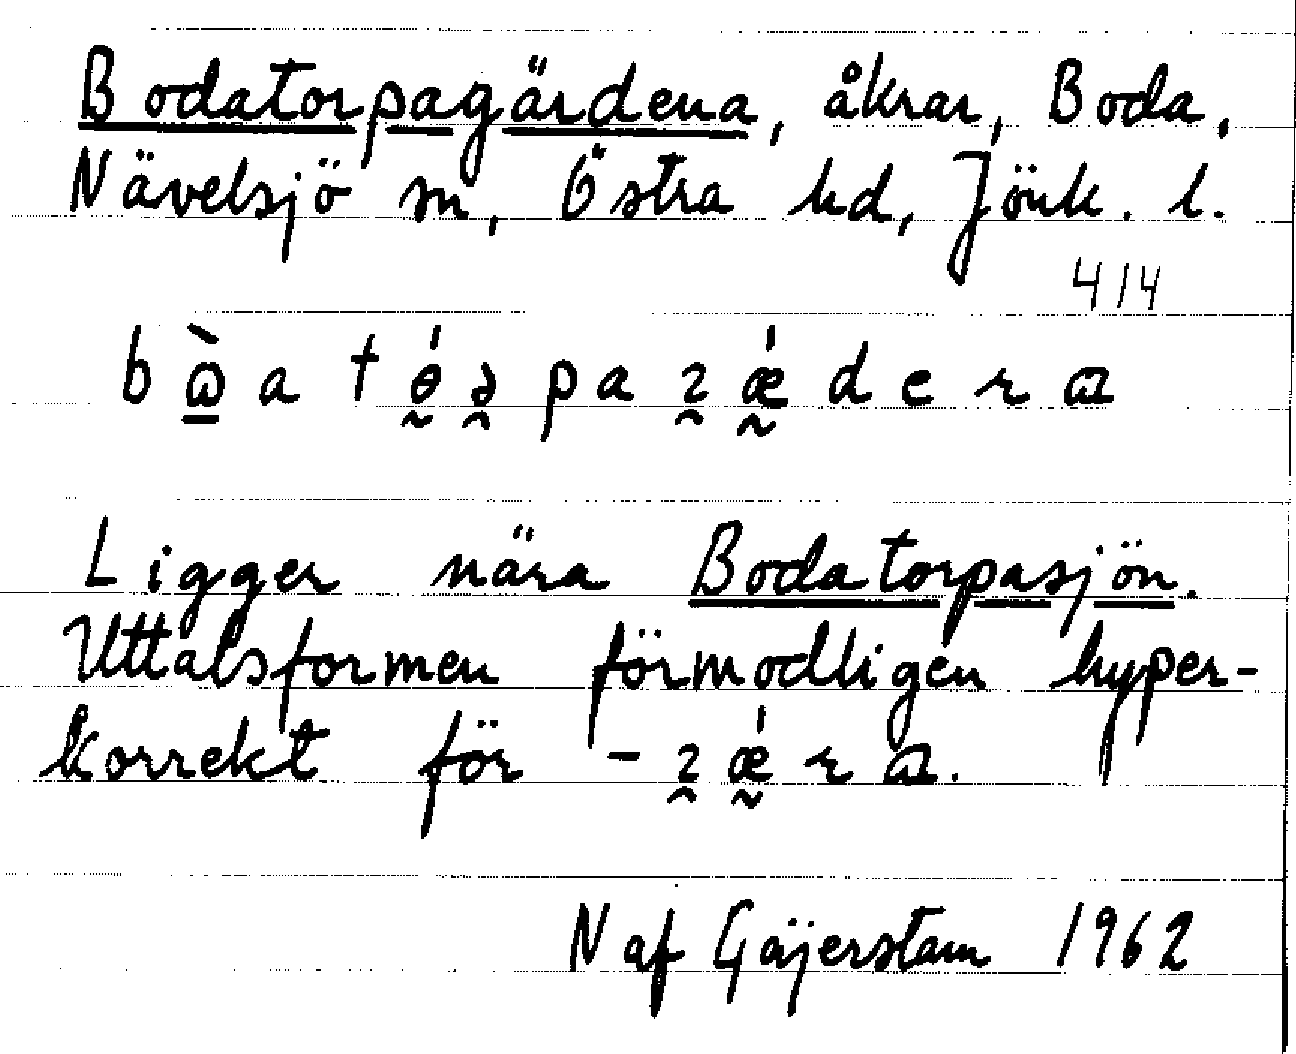 Bodatorpagärdena, åkrar, Boda,
Nävelsjö sn, Östra hd, Jönk. l.
414
Ligger nära Bodatorpasjön.
Uttalsformen förmodligen hyper-
korrekt för
N af Gäijerstam 1962